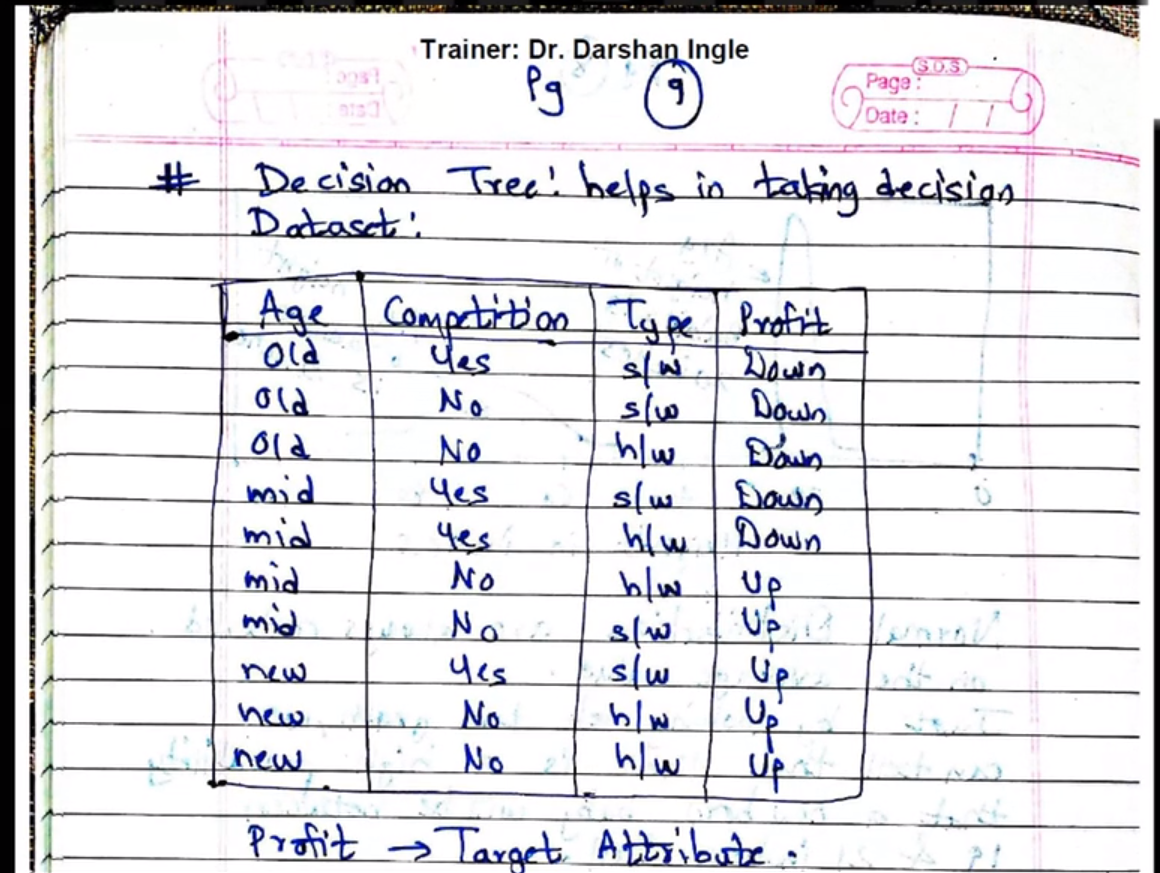 Trainer: Dr. Darshan Ingle
Pg 9
S.O.S
Page :
Date : / /
# Decision Tree: helps in taking decision
Dataset:
Age Competition Type Profit
Old Yes s/w Down
Old No s/w Down
Old No h/w Down
mid Yes s/w Down
mid Yes h/w Down
mid No h/w Up
mid No s/w Up
new Yes s/w Up
new No h/w Up
new No h/w Up
Profit → Target Attribute.